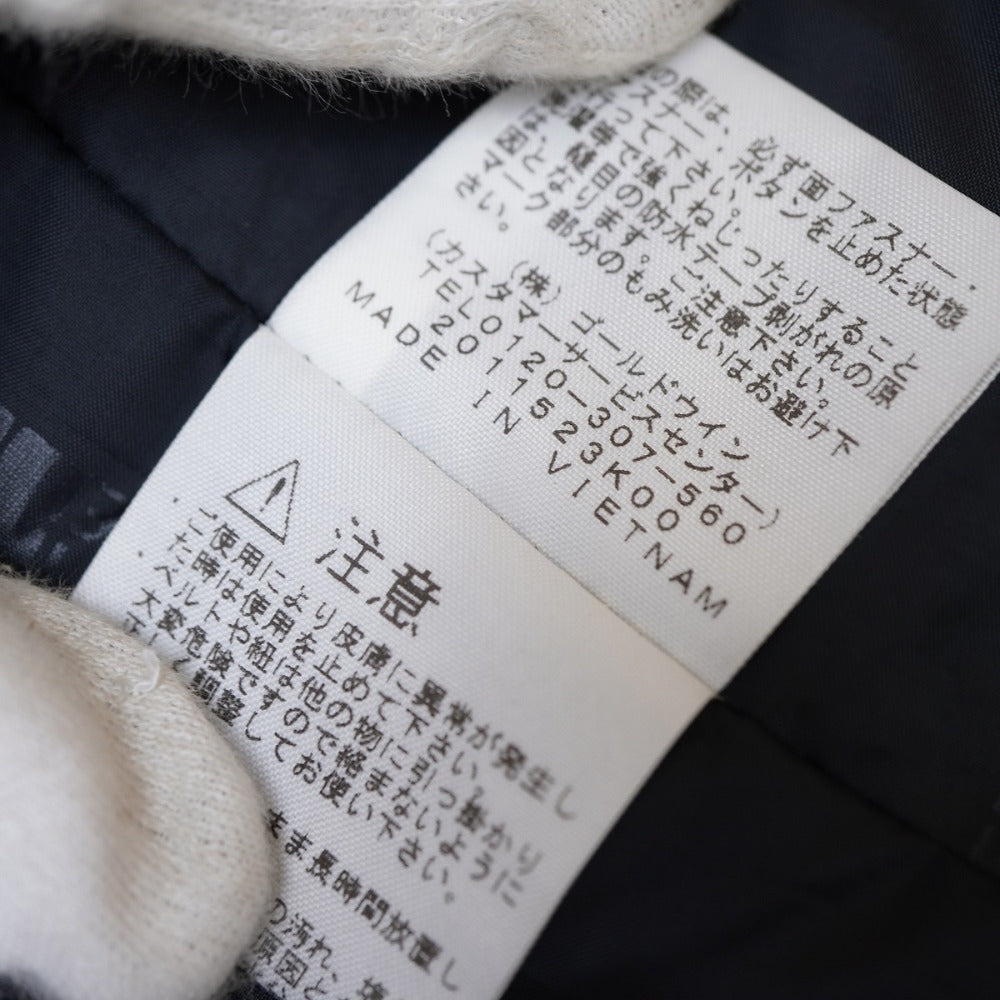 の際は、必ず面ファスナー・
スナー、ボタンを止めた状態
行って下さい。
濯時で強くねじったりすること
は、縫目の防水テープ剥がれの原
因となります。ご注意下さい。
マーク部分のもみ洗いはお避け下
さい。
(株)ゴールドウイン
(カスタマーサービスセンター)
TEL0120-307-560
2011523K00
MADE IN VIETNAM
注意
ご使用により皮膚に異常が発生し
た時は使用を止めて下さい。
・ベルトや紐は他の物に引っ掛かり
大変危険ですので絡まないように
正しく調整してお使い下さい。
まま長時間放置し
の汚れ、
原因と